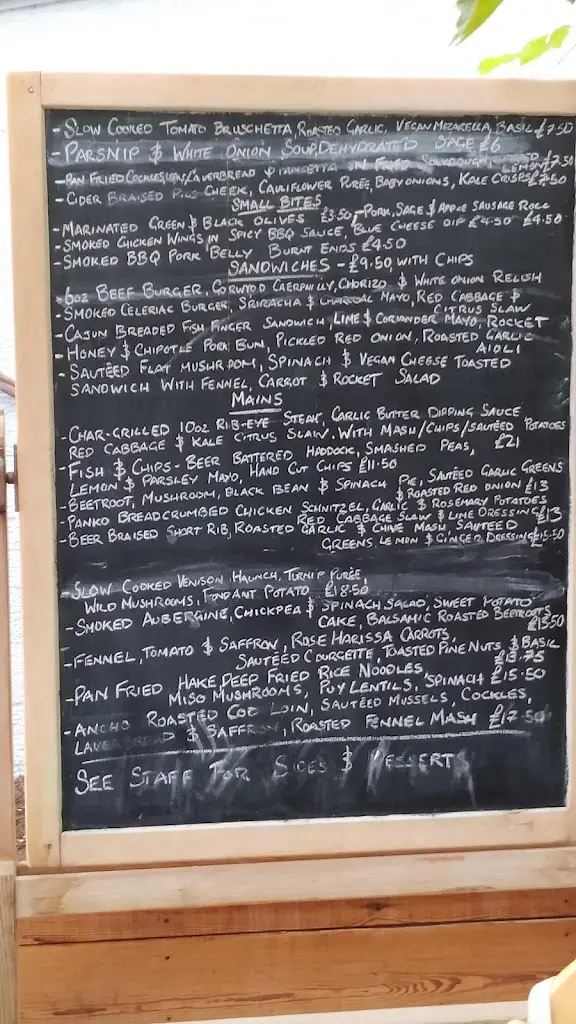 - SLOW COOKED TOMATO BRUSHETTA, ROASTED GARLIC, VEGAN MOZARELLA, BASIL £7.50
- PARSNIP & WHITE ONION SOUP, DEHYDRATED SAGE £6
- PAN FRIED COCKLES, LAVERBREAD & PANCETTA IN FRIED SOURDOUGH, LEMON £7.50
- CIDER BRAISED PIGS CHEEK, CAULIFLOWER PUREE, BABY ONIONS, KALE CRISPS £7.50
SMALL BITES
- MARINATED GREEN & BLACK OLIVES £3.50 - PORK, SAGE & APPLE SAUSAGE ROLL £4.50
- SMOKED CHICKEN WINGS IN SPICY BBQ SAUCE, BLUE CHEESE DIP £4.50
- SMOKED BBQ PORK BELLY BURNT ENDS £4.50
SANDWICHES - £9.50 WITH CHIPS
- 6oz BEEF BURGER, GORWYDD CAERPHILLY, CHORIZO & WHITE ONION RELISH
- SMOKED CELERIAC BURGER, SRIRACHA & CHARCOAL MAYO, RED CABBAGE & CITRUS SLAW
- CAJUN BREADED FISH FINGER SANDWICH, LIME & CORIANDER MAYO, ROCKET
- HONEY & CHIPOTLE PORK BUN, PICKLED RED ONION, ROASTED GARLIC AIOLI
- SAUTÉED FLAT MUSHROOM, SPINACH & VEGAN CHEESE TOASTED
SANDWICH WITH FENNEL, CARROT & ROCKET SALAD
MAINS
- CHAR-GRILLED 10oz RIB-EYE STEAK, GARLIC BUTTER DIPPING SAUCE
RED CABBAGE & KALE CITRUS SLAW. WITH MASH/CHIPS/SAUTÉED POTATOES £21
- FISH & CHIPS - BEER BATTERED HADDOCK, SMASHED PEAS,
LEMON & PARSLEY MAYO, HAND CUT CHIPS £11.50
- BEETROOT, MUSHROOM, BLACK BEAN & SPINACH PIE, SAUTÉED GARLIC GREENS
& ROASTED RED ONION £13
- PANKO BREADCRUMBED CHICKEN SCHNITZEL, GARLIC & ROSEMARY POTATOES
RED CABBAGE SLAW & LIME DRESSING £13
- BEER BRAISED SHORT RIB, ROASTED GARLIC & CHIVE MASH, SAUTEED
GREENS, LEMON & GINGER DRESSING £15.50
- SLOW COOKED VENISON HAUNCH, TURNIP PUREE,
WILD MUSHROOMS, FONDANT POTATO £18.50
- SMOKED AUBERGINE, CHICKPEA & SPINACH SALAD, SWEET POTATO
CAKE, BALSAMIC ROASTED BEETROOTS £13.50
- FENNEL, TOMATO & SAFFRON, ROSE HARISSA CARROTS,
SAUTÉED COURGETTE, TOASTED PINE NUTS & BASIL £13.75
- PAN FRIED HAKE, DEEP FRIED RICE NOODLES,
MISO MUSHROOMS, PUY LENTILS, SPINACH £15.50
- ANCHO ROASTED COD LOIN, SAUTÉED MUSSELS, COCKLES,
LAVERBREAD & SAFFRON, ROASTED FENNEL MASH £17.50
SEE STAFF FOR SIDES & DESSERTS